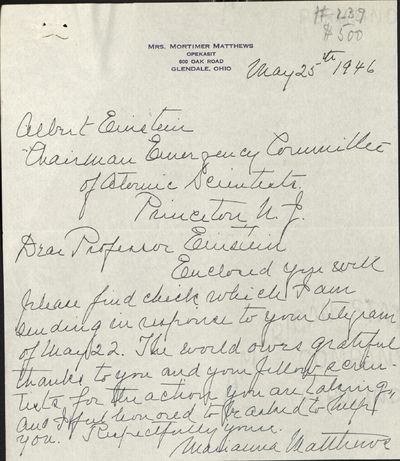 # 239
$500
MRS. MORTIMER MATTHEWS
OPEKASIT
600 OAK ROAD
GLENDALE, OHIO
May 25th 1946
Albert Einstein
Chairman Emergency Committee
of Atomic Scientists.
Princeton N. J.
Dear Professor Einstein
Enclosed you will
please find check which I am
sending in response to your telegram
of May 22. The world owes grateful
thanks to you and your fellow scien-
tists for the action you are taking,
and I feel honored to be asked to help
you. Respectfully yours.
Marianna Matthews